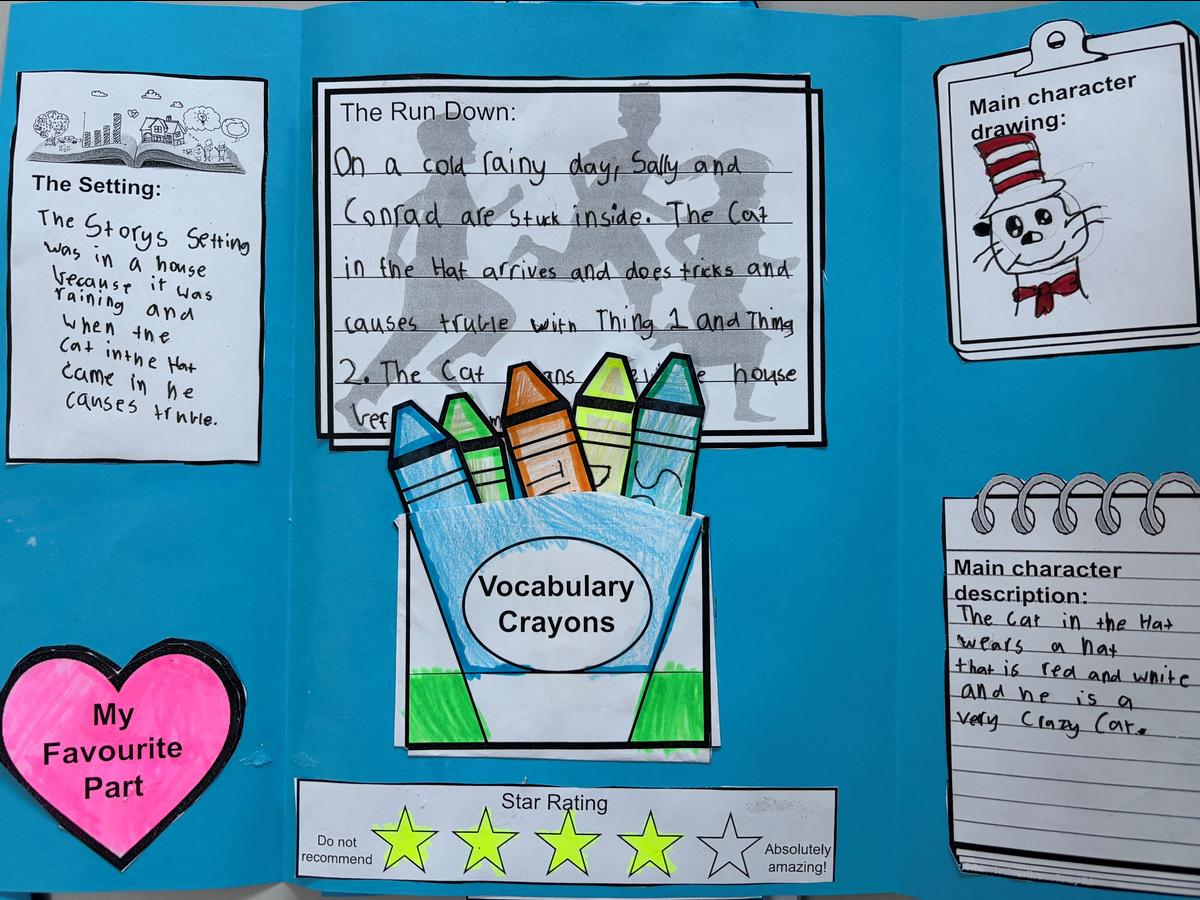 The Setting:
The Storys Setting
was in a house
because it was
raining and
when the
Cat in the Hat
came in he
causes truble.
My
Favourite
Part
The Run Down:
On a cold rainy day, Sally and
Conrad are stuck inside. The Cat
in the Hat arrives and does tricks and
causes truble with Thing 1 and Thing
2. The Cat house
Vocabulary
Crayons
Star Rating
Do not
recommend
Absolutely
amazing!
Main character
drawing:
Main character
description:
The Cat in the Hat
wears a hat
that is red and white
and he is a
very Crazy Cat.